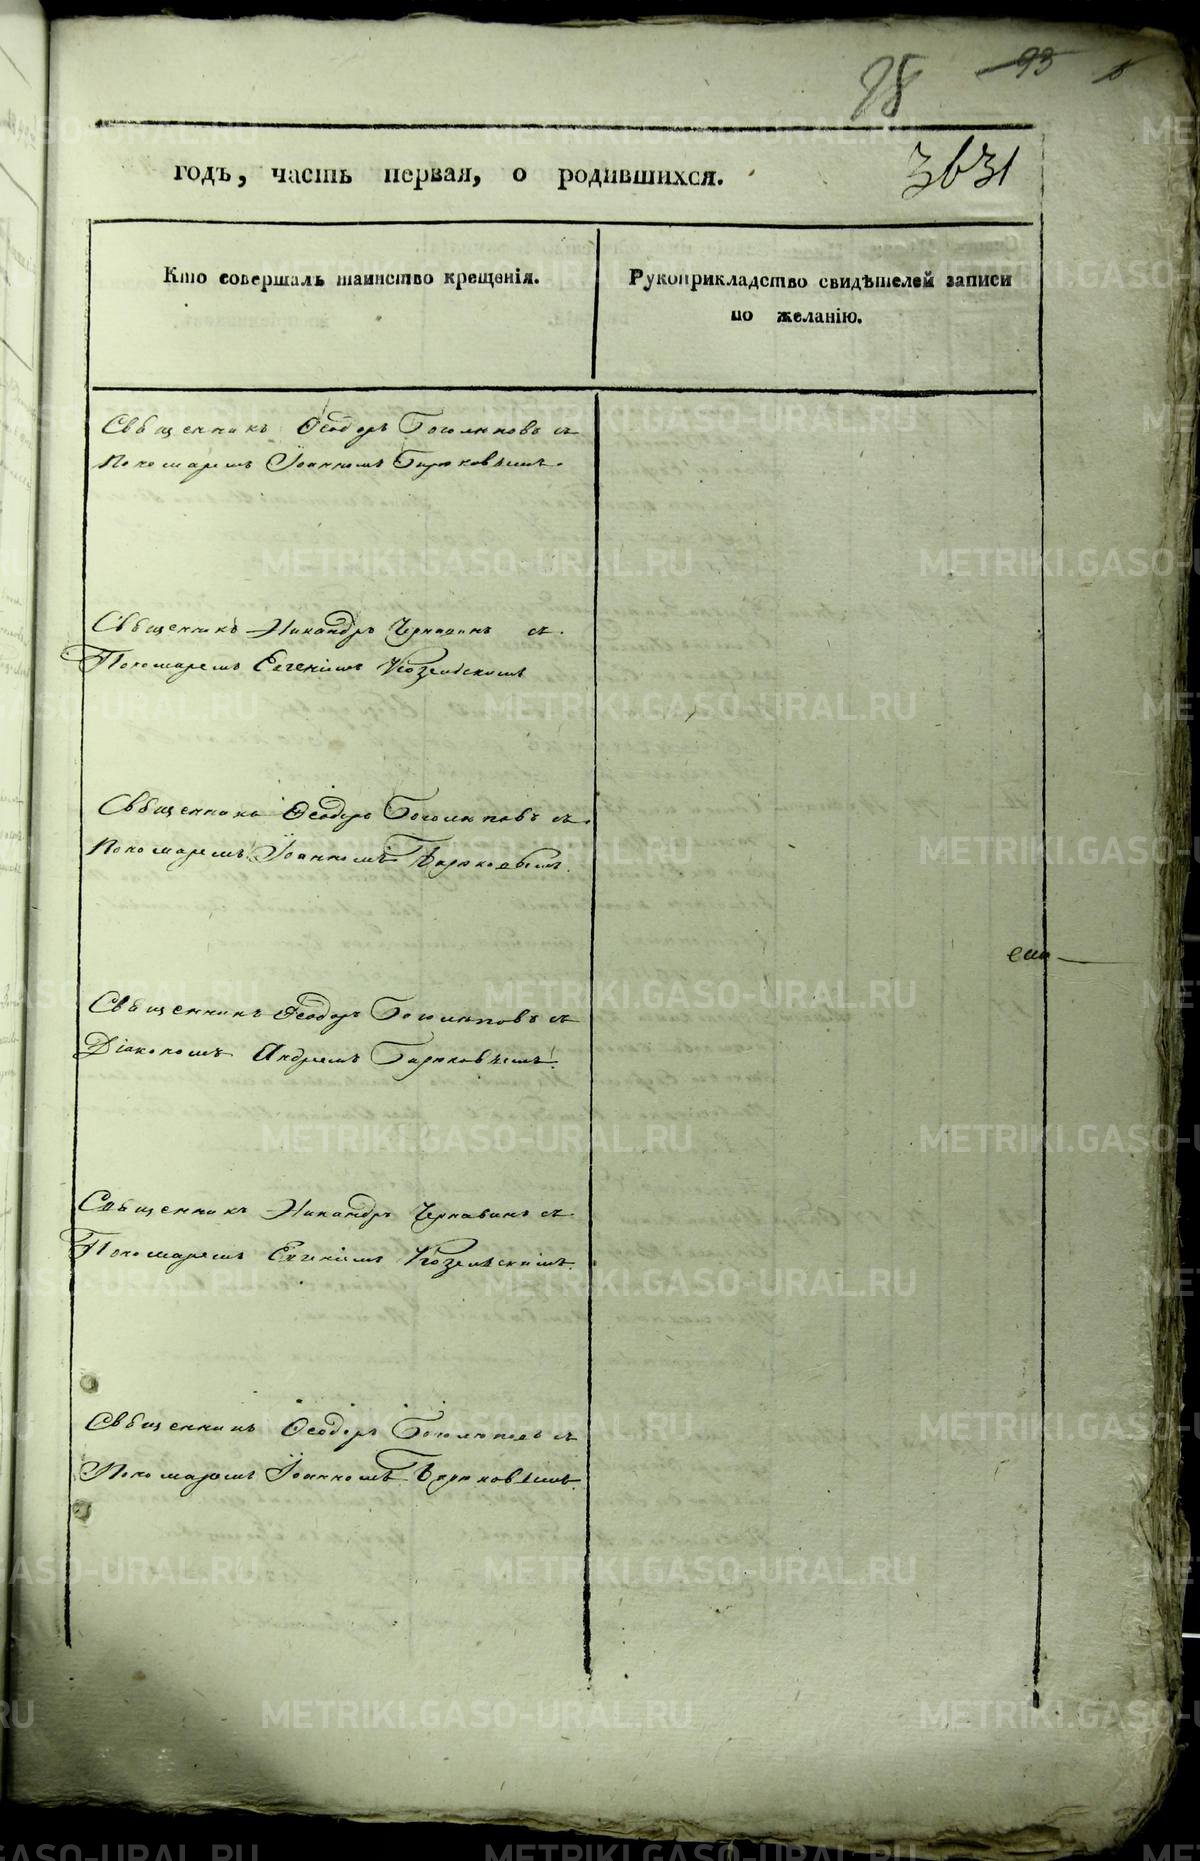 98 93
годъ, часть первая, о родившихся. 3631
Кто совершалъ таинство крещенія.
Рукоприкладство свидѣтелей записи
по желанію.
Священникъ Ѳеодоръ Боголюповъ съ
Пономаремъ Іоанномъ Бирюковымъ.
Священникъ Никандръ Чернавинъ съ
Пономаремъ Евгеніемъ Козельскимъ
Священникъ Ѳеодоръ Боголюповъ съ
Пономаремъ Іоанномъ Бирюковымъ.
Священникъ Ѳеодоръ Боголюповъ съ
Діакономъ Андреемъ Бирюковымъ.
Священникъ Никандръ Чернавинъ съ
Пономаремъ Евгеніемъ Козельскимъ.
Священникъ Ѳеодоръ Боголюповъ съ
Пономаремъ Іоанномъ Бирюковымъ.
METRIKI.GASO-URAL.RU